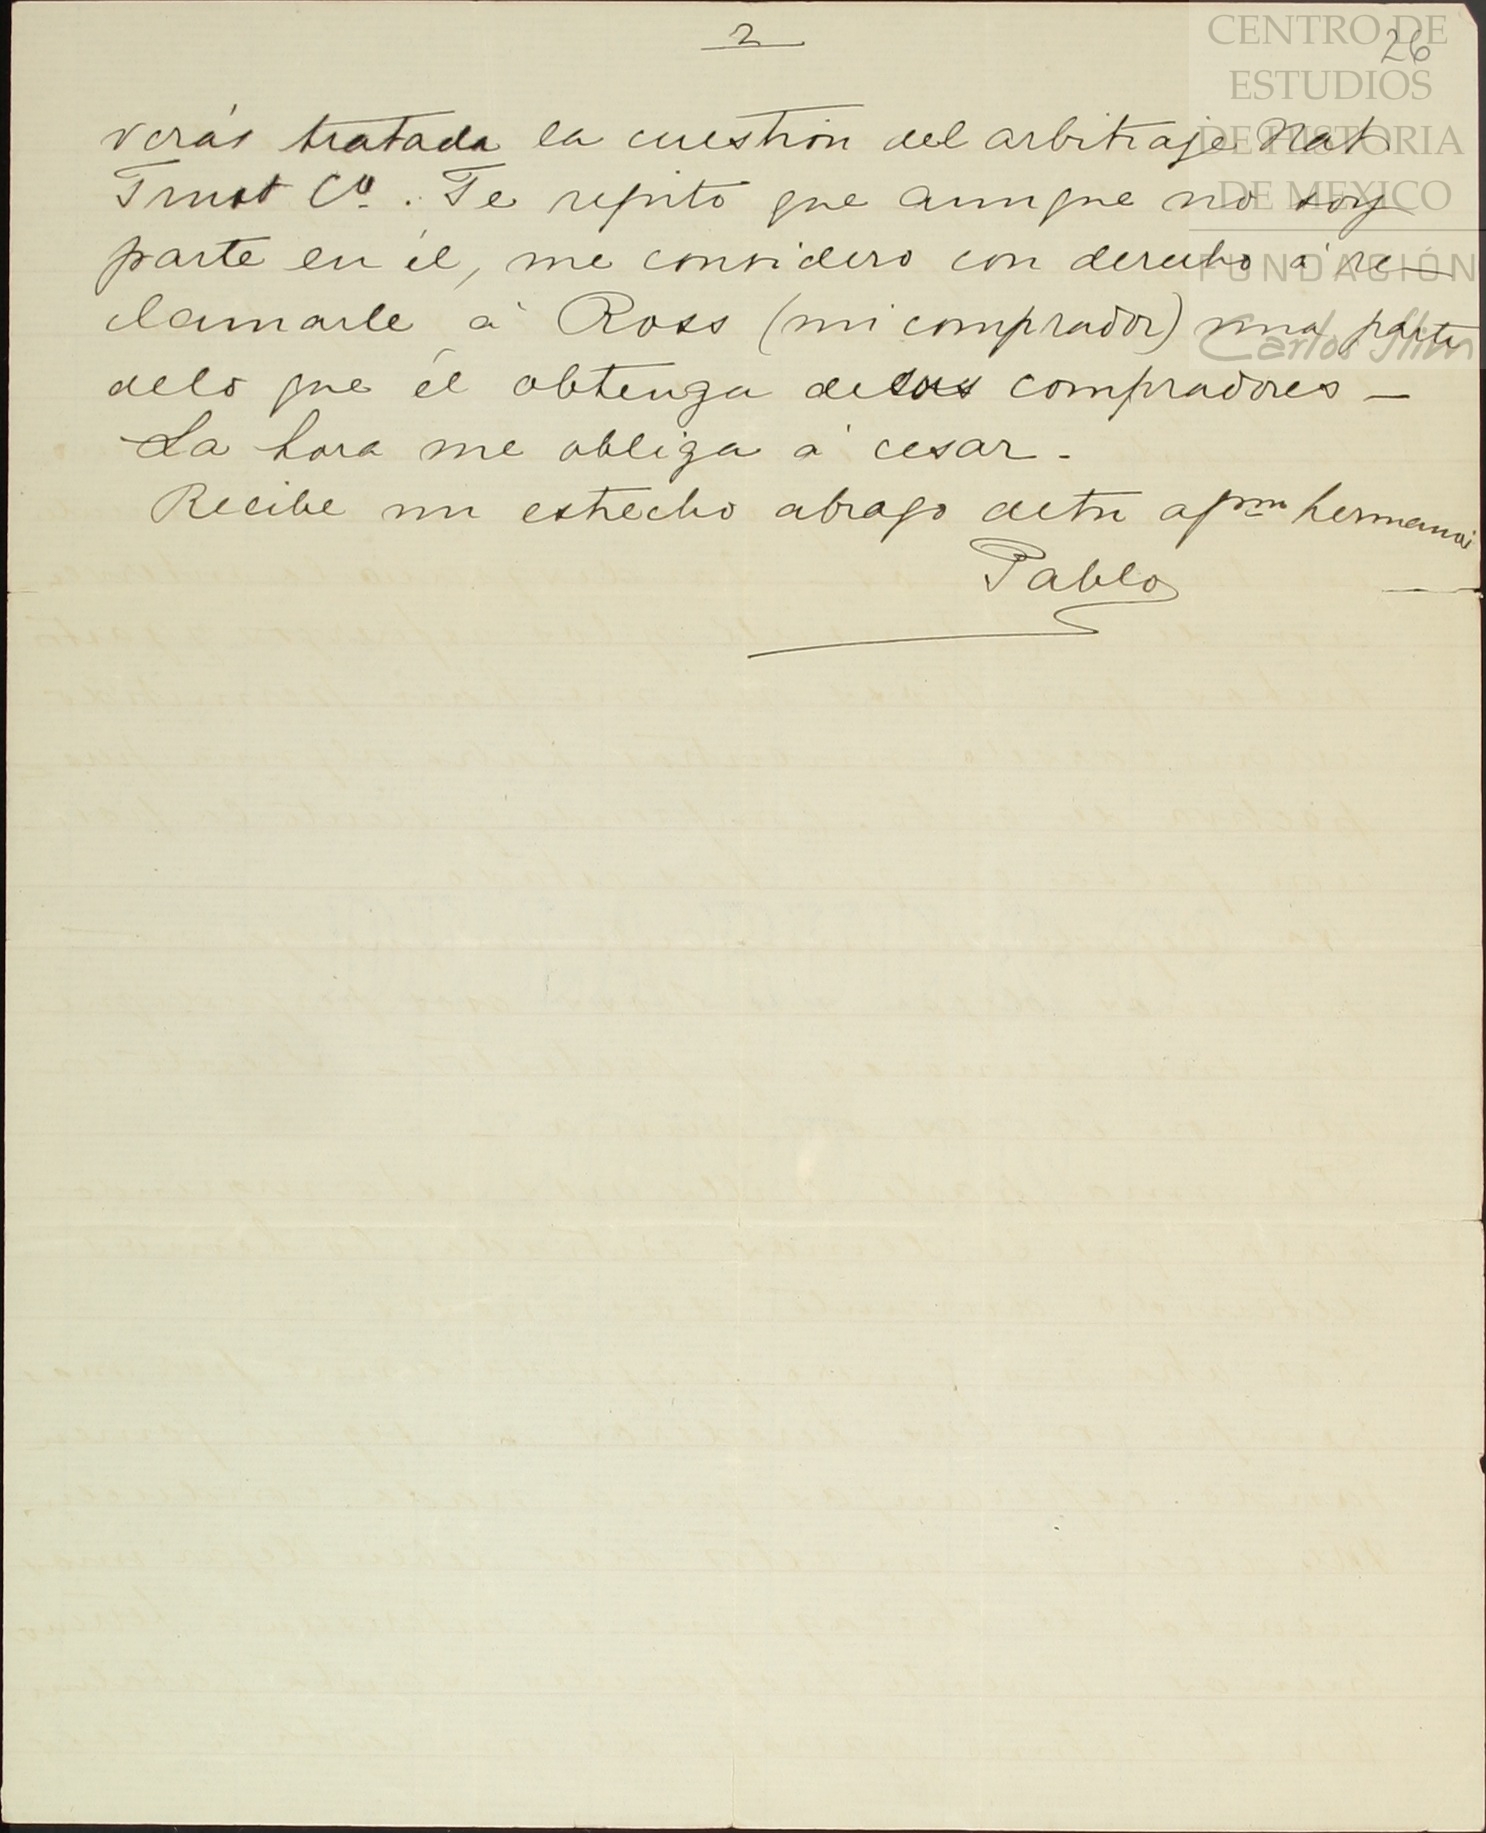 2
26
verás tratada la cuestión del arbitraje Nat.
Trust Cº. Te repito que aunque no soy
parte en él, me considero con derecho á re-
clamarle á Ross (mi comprador) una parte
de lo que él obtenga de sus compradores —
La hora me obliga á cesar.
Recibe un estrecho abrazo de tu apmo hermano
Pablo
CENTRO DE
ESTUDIOS
DE HISTORIA
DE MEXICO
FUNDACIÓN
Carlos Slim